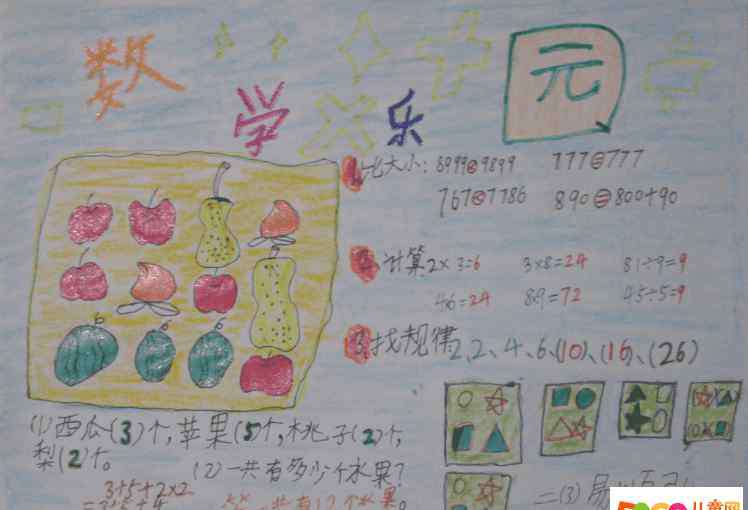 数学乐元
1.比大小: 8999<9899 777=777
767<7786 890=800+90
2.计算 2×3=6 3×8=24 81÷9=9
46=24 89=72 45÷5=9
3.找规律 2、2、4、6、(10)、(16)、(26)
(1)西瓜(3)个,苹果(5)个,桃子(2)个,
梨(2)个。
(2)一共有多少个水果?
3+5+2×2
=3+5+4
一共有12个水果。
二(3)
儿童网